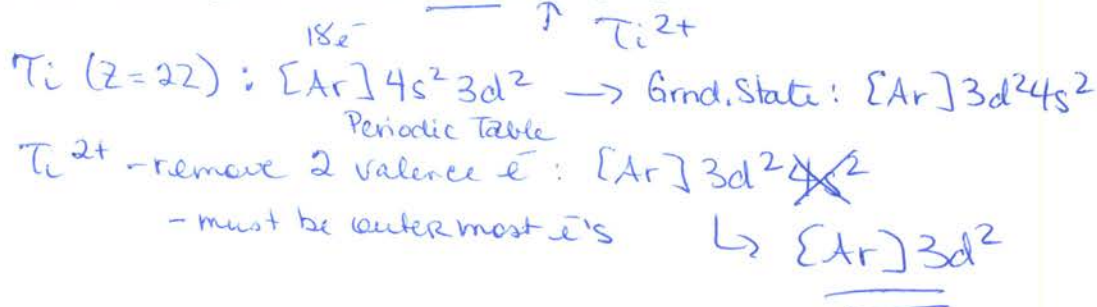 ↑ Ti 2+
18e⁻
Ti (Z=22) : [Ar] 4s² 3d² → Grnd. State : [Ar] 3d² 4s²
Periodic Table
Ti 2+ - remove 2 valence e⁻ : [Ar] 3d² 4s²
- must be outermost e⁻'s ↳ [Ar] 3d²